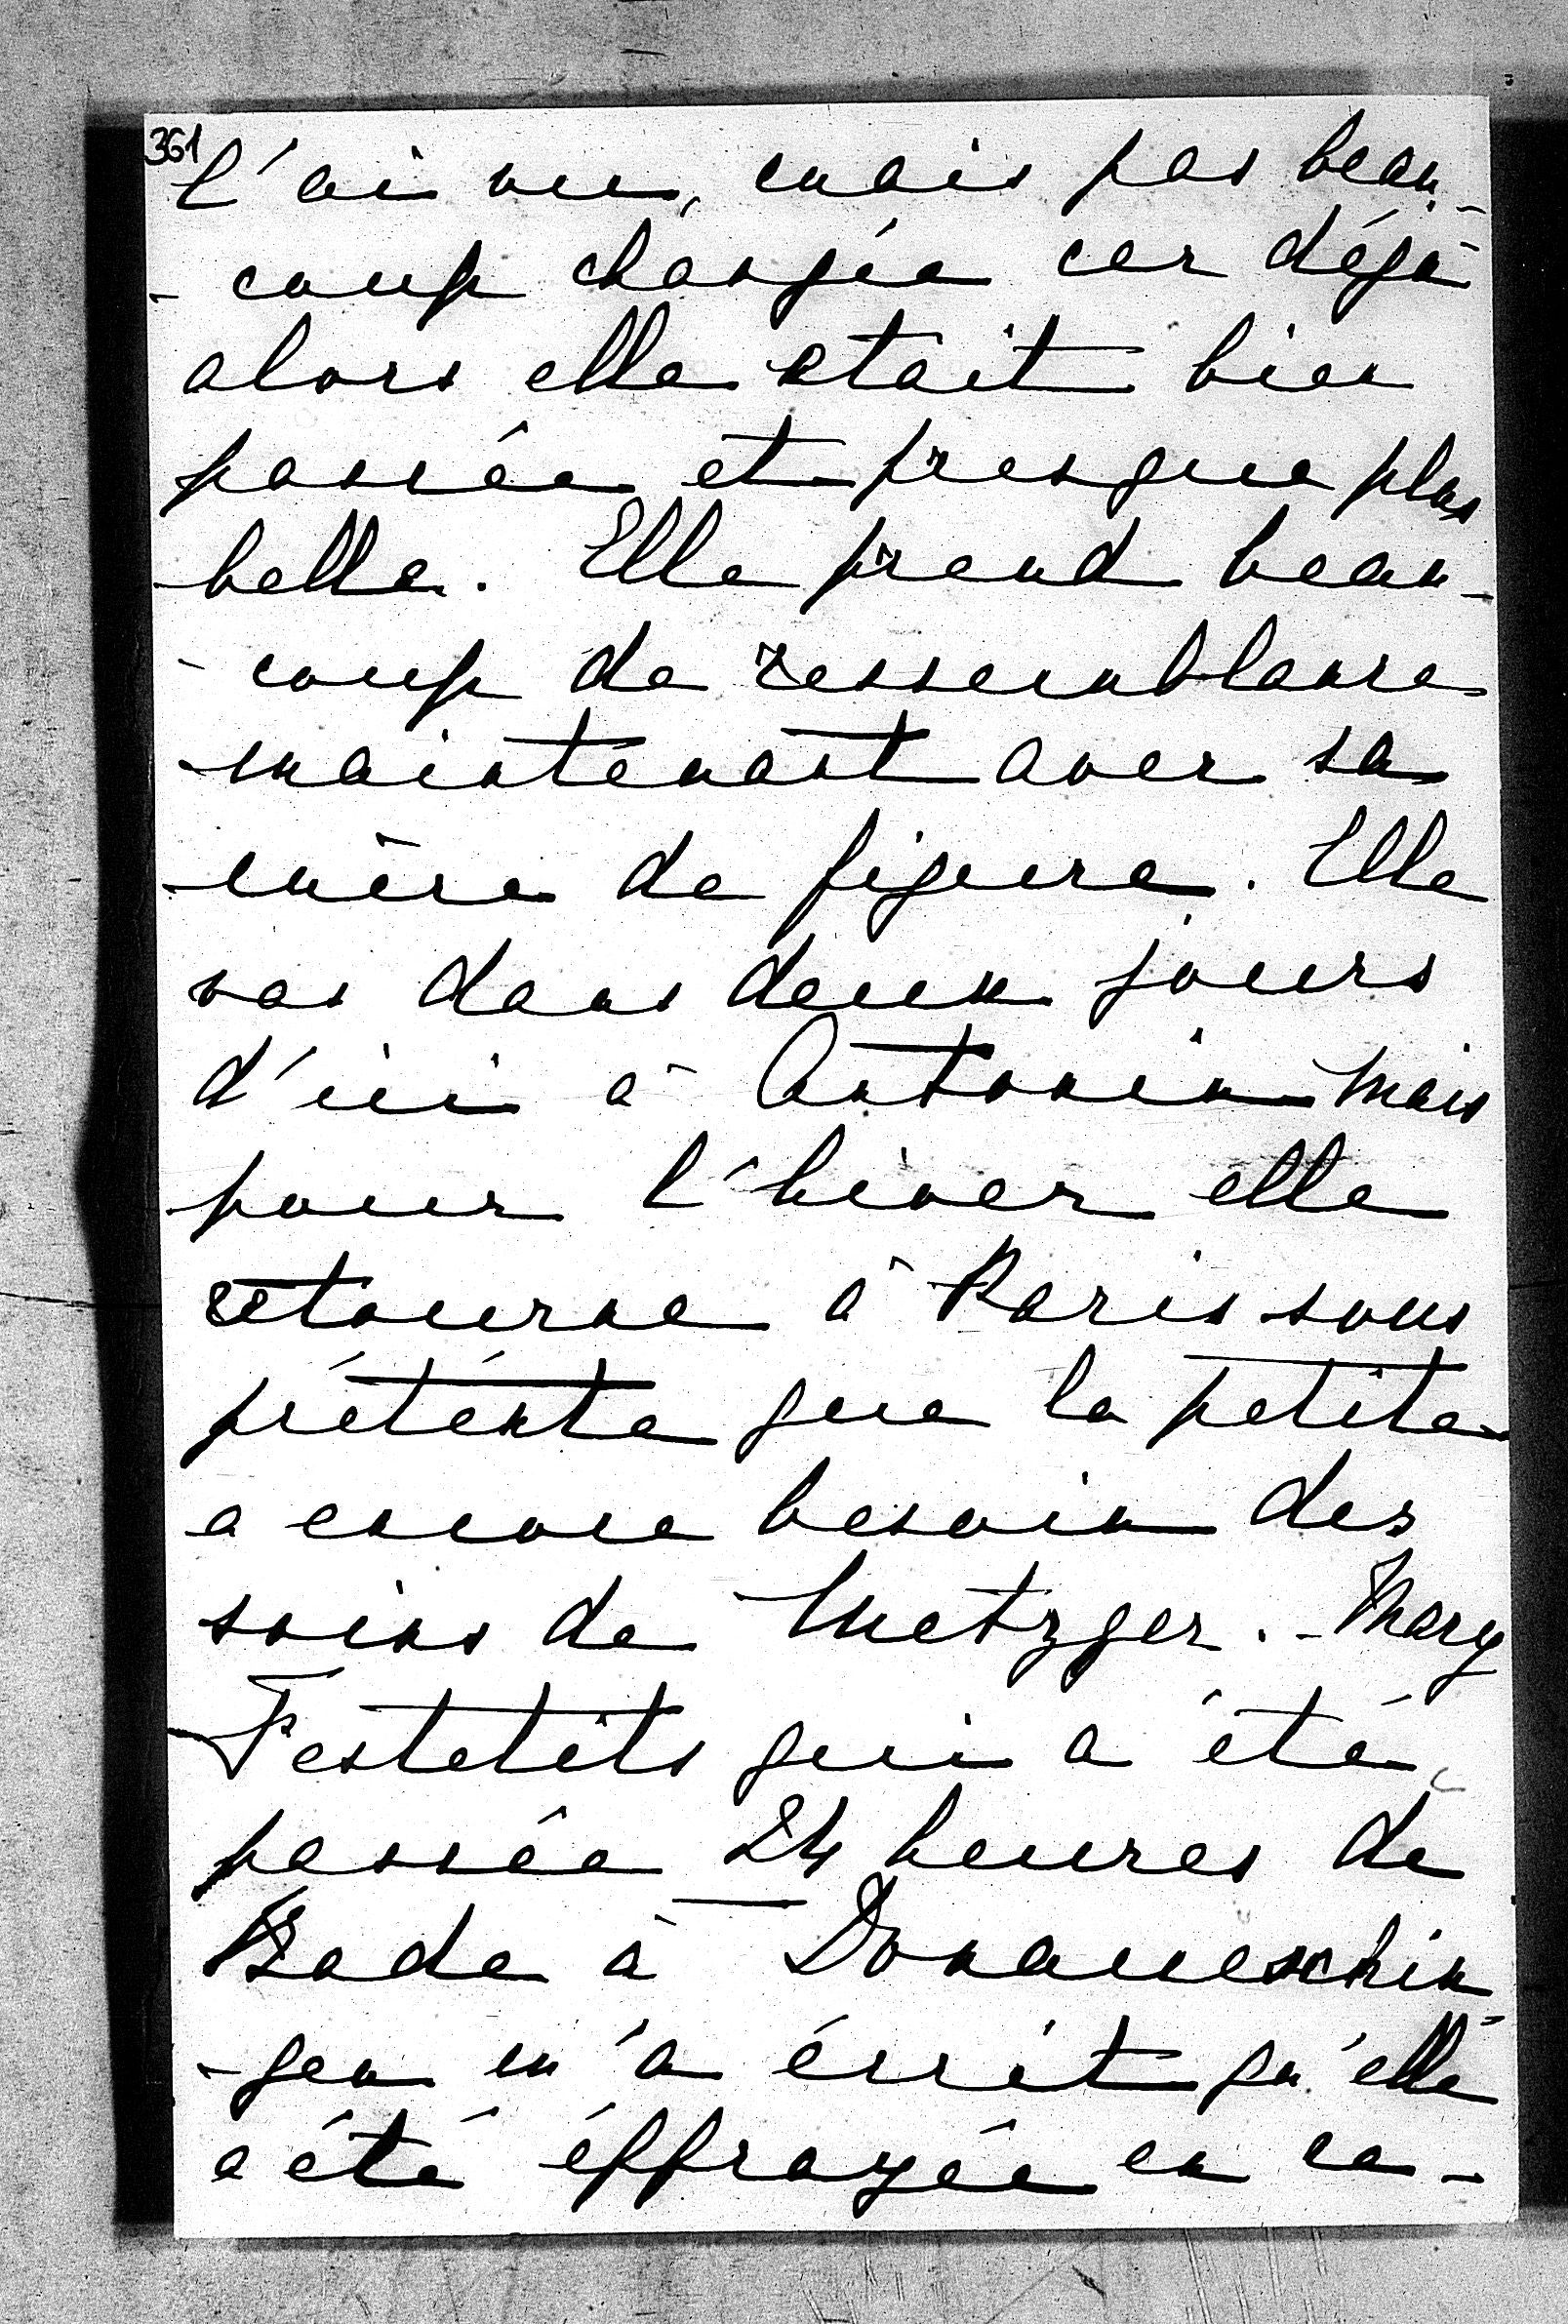 361
l'ai vue, mais pas beau-
-coup changée car déjà
alors elle etait bien
passée et presque plus
belle. Elle prend beau-
-coup de ressemblance
maintenant avec sa
mère de figure. Elle
vas dans deux jours
d'ici à Antonin mais
pour l'hiver elle
retourne à Paris sous
prétéxte que la petite
a encore besoin des
soins de Metzger. - Mary
Festetits qui a été
passée 24 heures de
Bade à Donaueschin-
-gen m'a écrit qu'elle
a été éffrayée en re-